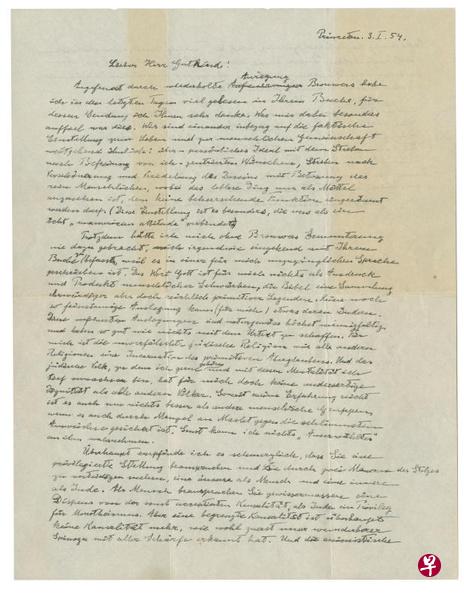 Princeton. 3. I. 54.
Lieber Herr Gutkind!
Angefeuert durch wiederholte Anregung Brouwers habe
ich in den letzten Tagen viel gelesen in Ihrem Buche, für
dessen Sendung ich Ihnen sehr danke. Was mir dabei besonders
auffiel war dies. Wir sind einander inbezug auf die faktische
Einstellung zum Leben und zur menschlichen Gemeinschaft
weitgehend ähnlich: über-persönliches Ideal mit dem Streben
nach Befreiung von ich-zentrierten Wünschen, Streben nach
Verschönerung und Veredelung des Daseins mit Betonung des
rein Menschlichen, wobei das leblose Ding nur als Mittel
anzusehen ist, dem keine beherrschende Funktion eingeräumt
werden darf. (Diese Einstellung ist es besonders, die uns als ein
echt "unamerican attitude" verbindet)
Trotzdem hätte ich mich ohne Brouwers Ermunterung
nie dazu gebracht, mich irgendwie eingehend mit Ihrem
Buche befasst, weil es in einer für mich unzugänglichen Sprache
geschrieben ist. Das Wort Gott ist für mich nichts als Ausdruck
und Produkt menschlicher Schwächen, die Bibel eine Sammlung
ehrwürdiger aber doch reichlich primitiver Legenden. Keine noch
so feinsinnige Auslegung kann (für mich) etwas daran ändern.
Diese verfeinerten Auslegungen sind naturgemäss höchst mannigfaltig
und haben so gut wie nichts mit dem Urtext zu schaffen. Für
mich ist die unverfälschte jüdische Religion wie alle anderen
Religionen eine Incarnation des primitiven Aberglaubens. Und das
jüdische Volk, zu dem ich gerne gehöre und mit dessen Mentalität ich
tief verwachsen bin, hat für mich doch keine andersartige
Dignität als alle anderen Völker. Soweit meine Erfahrung reicht
ist es auch um nichts besser als andere menschliche Gruppen,
wenn es auch durch Mangel an Macht gegen die schlimmsten
Auswüchse gesichert ist. Sonst kann ich nichts "Auserwähltes"
an ihm wahrnehmen.
Überhaupt empfinde ich es schmerzlich, dass Sie eine
privilegierte Stellung beanspruchen und sie durch zwei Mauern des Stolzes
zu verteidigen suchen, eine äussere als Mensch und eine innere
als Jude. Als Mensch beanspruchen Sie gewissermassen einen
Dispens von der sonst acceptierten Kausalität, als Jude ein Privileg
für Monotheismus. Aber eine begrenzte Kausalität ist überhaupt
keine Kausalität mehr, wie wohl zuerst unser wunderbarer
Spinoza mit aller Schärfe erkannt hat. Und die animistische
早